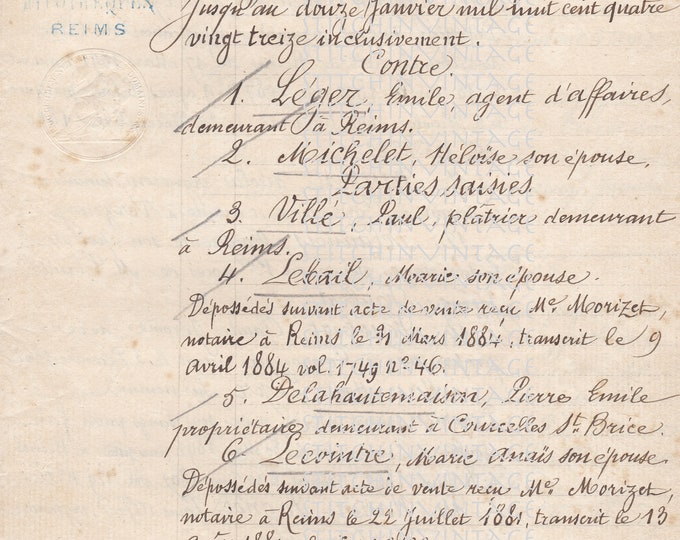 REIMS
jusqu'au douze Janvier mil huit cent quatre
vingt treize inclusivement.
Contre
1. Léger, Emile agent d'affaires,
demeurant à Reims.
2. Michelet, Héloïse son épouse,
Parties saisies
3. Villé, Paul, plâtrier demeurant
à Reims.
4. Letail, Marie son épouse.
Dépossédés suivant acte de vente reçu Me. Morizet,
notaire à Reims le 31 Mars 1884, transcrit le 9
avril 1884 vol. 1749 no 46.
5. Delahautemaison, Pierre Emile
propriétaire demeurant à Courcelles St. Brice.
6. Lecointre, Marie Anaïs son épouse
Dépossédés suivant acte de vente reçu Me. Morizet,
notaire à Reims le 22 Juillet 1881, transcrit le 13